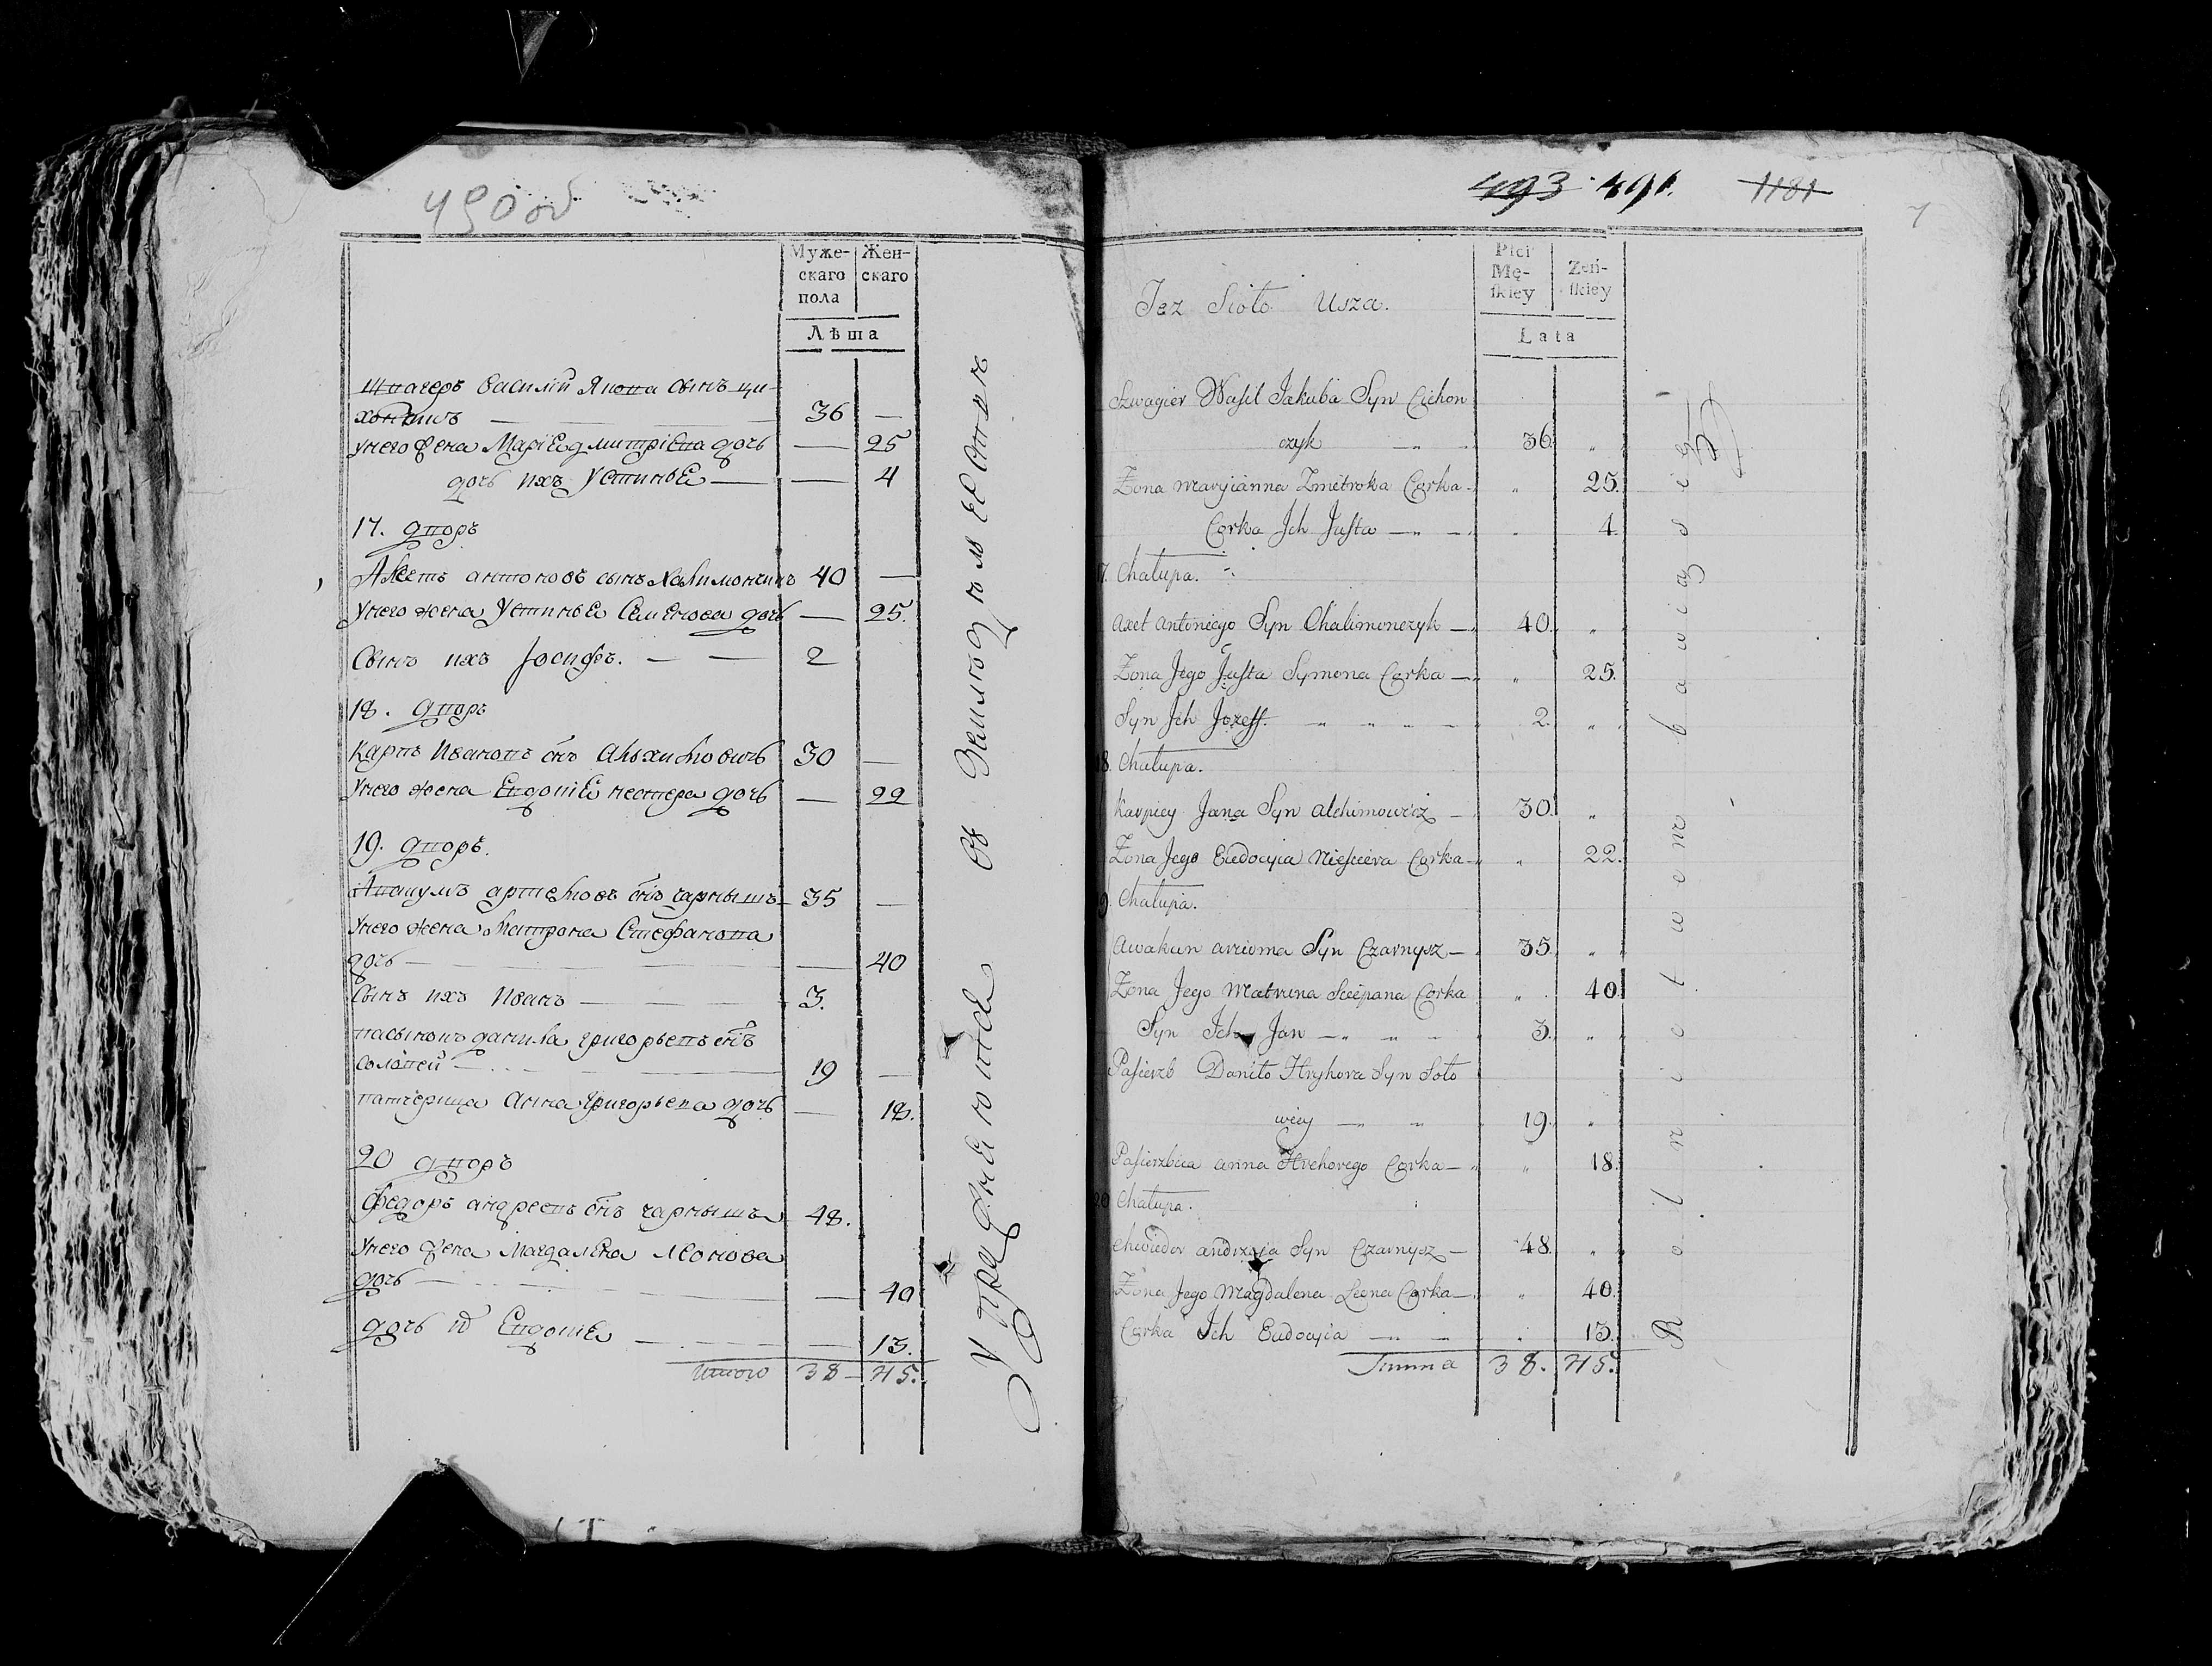 490 об
Муже-
скаго
пола
Жен-
скаго
Лѣта
Швагеръ Василiй Якова сынъ Ци-
хончикъ — 36 —
У него жена Марiя Дмитрiева дочь — 25
дочь ихъ Устинья — — 4
17. дворъ
Аксетъ Антоновъ сынъ Халимончикъ 40 —
У него жена Устинья Семенова дочь — 25.
Сынъ ихъ Iосифъ. — — 2
18. дворъ
Карпъ Ивановъ снъ Альхимовичъ 30 —
У него жена Евдотiя Нестера дочь — 22
19. дворъ.
Авакумъ Артемовъ снъ Чарнышъ 35 —
У него жена Матрона Стефанова
дочь — — 40
Сынъ ихъ Иванъ — 3.
пасынокъ Данила Григорьевъ снъ
Соловей — 19 —
патчерица Анна Григорьева дочь — 18.
20 дворъ
Федоръ Андреевъ снъ Чарнышъ 48.
У него жена Магдалена Леонова
дочь — — 40
дочь их Евдотiя — — 13.
Итого 38 — 45.
Упражняются въ земледѣлiи
493 491. 1181
7
Jez Sioło Usza.
Płci
Mę-
ſkiey
Żeń-
ſkiey
Lata
Szwagier Waſil Jakuba Syn Cichon
czyk — 36. „
Żona Maryianna Zmitroka Corka — „ 25.
Corka Ich Juſta — „ — „ 4.
17. Chałupa.
Axet Antoniego Syn Chalimonczyk — 40. „
Żona Jego Juſta Symona Corka — „ 25.
Syn Ich Jozeff. „ „ „ — 2. „
18. Chałupa.
Karpiey Jana Syn Alchimowicz — 30. „
Żona Jego Eudocyia Nieſciera Corka — „ 22.
19. Chałupa.
Awakun Arcioma Syn Czarnysz — 35. „
Żona Jego Matruna Sciepana Corka „ 40.
Syn Ich Jan — „ — 3. „
Paſierzb Daniło Hryhora Syn Soło
wiey — „ 19. „
Paſierzbica Anna Hrehorego Corka — „ 18.
20 Chałupa.
Chwiedor Andrzeja Syn Czarnysz — 48. „
Żona Jego Magdalena Leona Corka — „ 40.
Corka Ich Eudocyia — — „ 13.
Summa 38. 45.
Rolnictwem bawią się